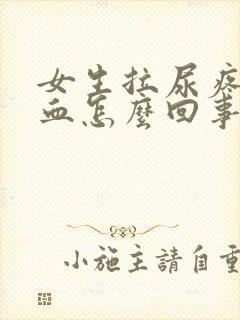 女生拉尿疼
血怎麼回事
小施主請自重